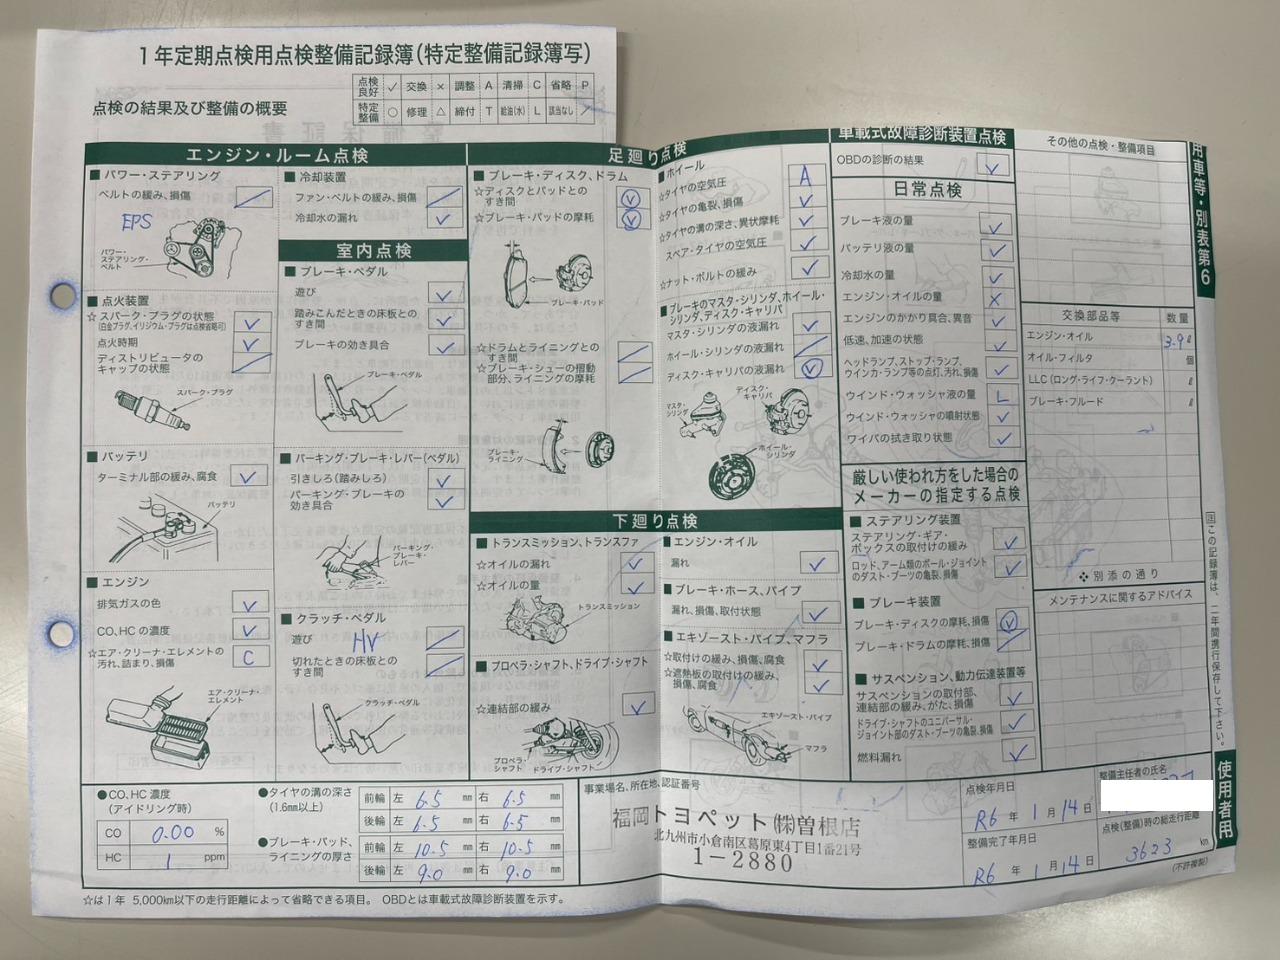 1年定期点検用点検整備記録簿(特定整備記録簿写)
点検の結果及び整備の概要
点検良好 ✓ 交換 × 調整 A 清掃 C 省略 P
特定整備 ○ 修理 △ 締付 T 給油(水) L 該当なし ／
エンジン・ルーム点検
■ パワー・ステアリング
ベルトの緩み、損傷 ／
EPS
パワー・ステアリング・ベルト
■ 点火装置
☆スパーク・プラグの状態 ✓
(白金プラグ、イリジウム・プラグは点検省略可)
点火時期 ✓
ディストリビュータのキャップの状態 ／
スパーク・プラグ
■ バッテリ
ターミナル部の緩み、腐食 ✓
バッテリ
■ エンジン
排気ガスの色 ✓
CO、HCの濃度 ✓
☆エア・クリーナ・エレメントの汚れ、詰まり、損傷 C
エア・クリーナ・エレメント
■ 冷却装置
ファン・ベルトの緩み、損傷 ／
冷却水の漏れ ✓
室内点検
■ ブレーキ・ペダル
遊び ✓
踏みこんだときの床板とのすき間 ✓
ブレーキの効き具合 ✓
ブレーキ・ペダル
■ パーキング・ブレーキ・レバー(ペダル)
引きしろ(踏みしろ) ✓
パーキング・ブレーキの効き具合 ✓
パーキング・ブレーキ・レバー
■ クラッチ・ペダル
遊び HV ／
切れたときの床板とのすき間 ／
クラッチ・ペダル
足廻り点検
■ ブレーキ・ディスク、ドラム
☆ディスクとパッドとのすき間 ✓
☆ブレーキ・パッドの摩耗 ✓
ブレーキ・パッド
☆ドラムとライニングとのすき間 ／
☆ブレーキ・シューの摺動部分、ライニングの摩耗 ／
ブレーキ・ライニング
■ ホイール
☆タイヤの空気圧 A
☆タイヤの亀裂、損傷 ✓
☆タイヤの溝の深さ、異状摩耗 ✓
スペア・タイヤの空気圧 ✓
☆ナット・ボルトの緩み ✓
■ ブレーキのマスタ・シリンダ、ホイール・シリンダ、ディスク・キャリパ
マスタ・シリンダの液漏れ ✓
ホイール・シリンダの液漏れ ／
ディスク・キャリパの液漏れ ✓
マスタ・シリンダ
ディスク・キャリパ
ホイール・シリンダ
下廻り点検
■ トランスミッション、トランスファ
☆オイルの漏れ ✓
☆オイルの量 ✓
トランスミッション
■ プロペラ・シャフト、ドライブ・シャフト
☆連結部の緩み ✓
プロペラ・シャフト
ドライブ・シャフト
■ エンジン・オイル
漏れ ✓
■ ブレーキ・ホース、パイプ
漏れ、損傷、取付状態 ✓
■ エキゾースト・パイプ、マフラ
☆取付けの緩み、損傷、腐食 ✓
☆遮熱板の取付けの緩み、損傷、腐食 ✓
エキゾースト・パイプ
マフラ
車載式故障診断装置点検
OBDの診断の結果 ✓
日常点検
ブレーキ液の量 ✓
バッテリ液の量 ✓
冷却水の量 ✓
エンジン・オイルの量 ×
エンジンのかかり具合、異音 ✓
低速、加速の状態 ✓
ヘッドランプ、ストップ・ランプ、ウインカ・ランプ等の点灯、汚れ、損傷 ✓
ウインド・ウォッシャ液の量 L
ウインド・ウォッシャの噴射状態 ✓
ワイパの拭き取り状態 ✓
厳しい使われ方をした場合のメーカーの指定する点検
■ ステアリング装置
ステアリング・ギア・ボックスの取付けの緩み ✓
ロッド、アーム類のボール・ジョイントのダスト・ブーツの亀裂、損傷 ✓
■ ブレーキ装置
ブレーキ・ディスクの摩耗、損傷 ✓
ブレーキ・ドラムの摩耗、損傷 ／
■ サスペンション、動力伝達装置等
サスペンションの取付部、連結部の緩み、がた、損傷 ✓
ドライブ・シャフトのユニバーサル・ジョイント部のダスト・ブーツの亀裂、損傷 ✓
燃料漏れ ✓
その他の点検・整備項目
交換部品等 数量
エンジン・オイル 3.9ℓ
オイル・フィルタ 個
LLC(ロング・ライフ・クーラント) ℓ
ブレーキ・フルード ℓ
❖ 別添の通り
メンテナンスに関するアドバイス
用車等・別表第6
注この記録簿は、二年間携行保存して下さい。
使用者用
●CO、HC濃度(アイドリング時)
CO 0.00 %
HC 1 ppm
●タイヤの溝の深さ(1.6mm以上)
前輪 左 6.5 mm 右 6.5 mm
後輪 左 6.5 mm 右 6.5 mm
●ブレーキ・パッド、ライニングの厚さ
前輪 左 10.5 mm 右 10.5 mm
後輪 左 9.0 mm 右 9.0 mm
事業場名、所在地、認証番号
福岡トヨペット(株)曽根店
北九州市小倉南区葛原東4丁目1番21号
1-2880
点検年月日
R6 年 1 月 14 日
整備完了年月日
R6 年 1 月 14 日
整備主任者の氏名
点検(整備)時の総走行距離
3623 km
(不許複製)
☆は1年 5,000km以下の走行距離によって省略できる項目。 OBDとは車載式故障診断装置を示す。